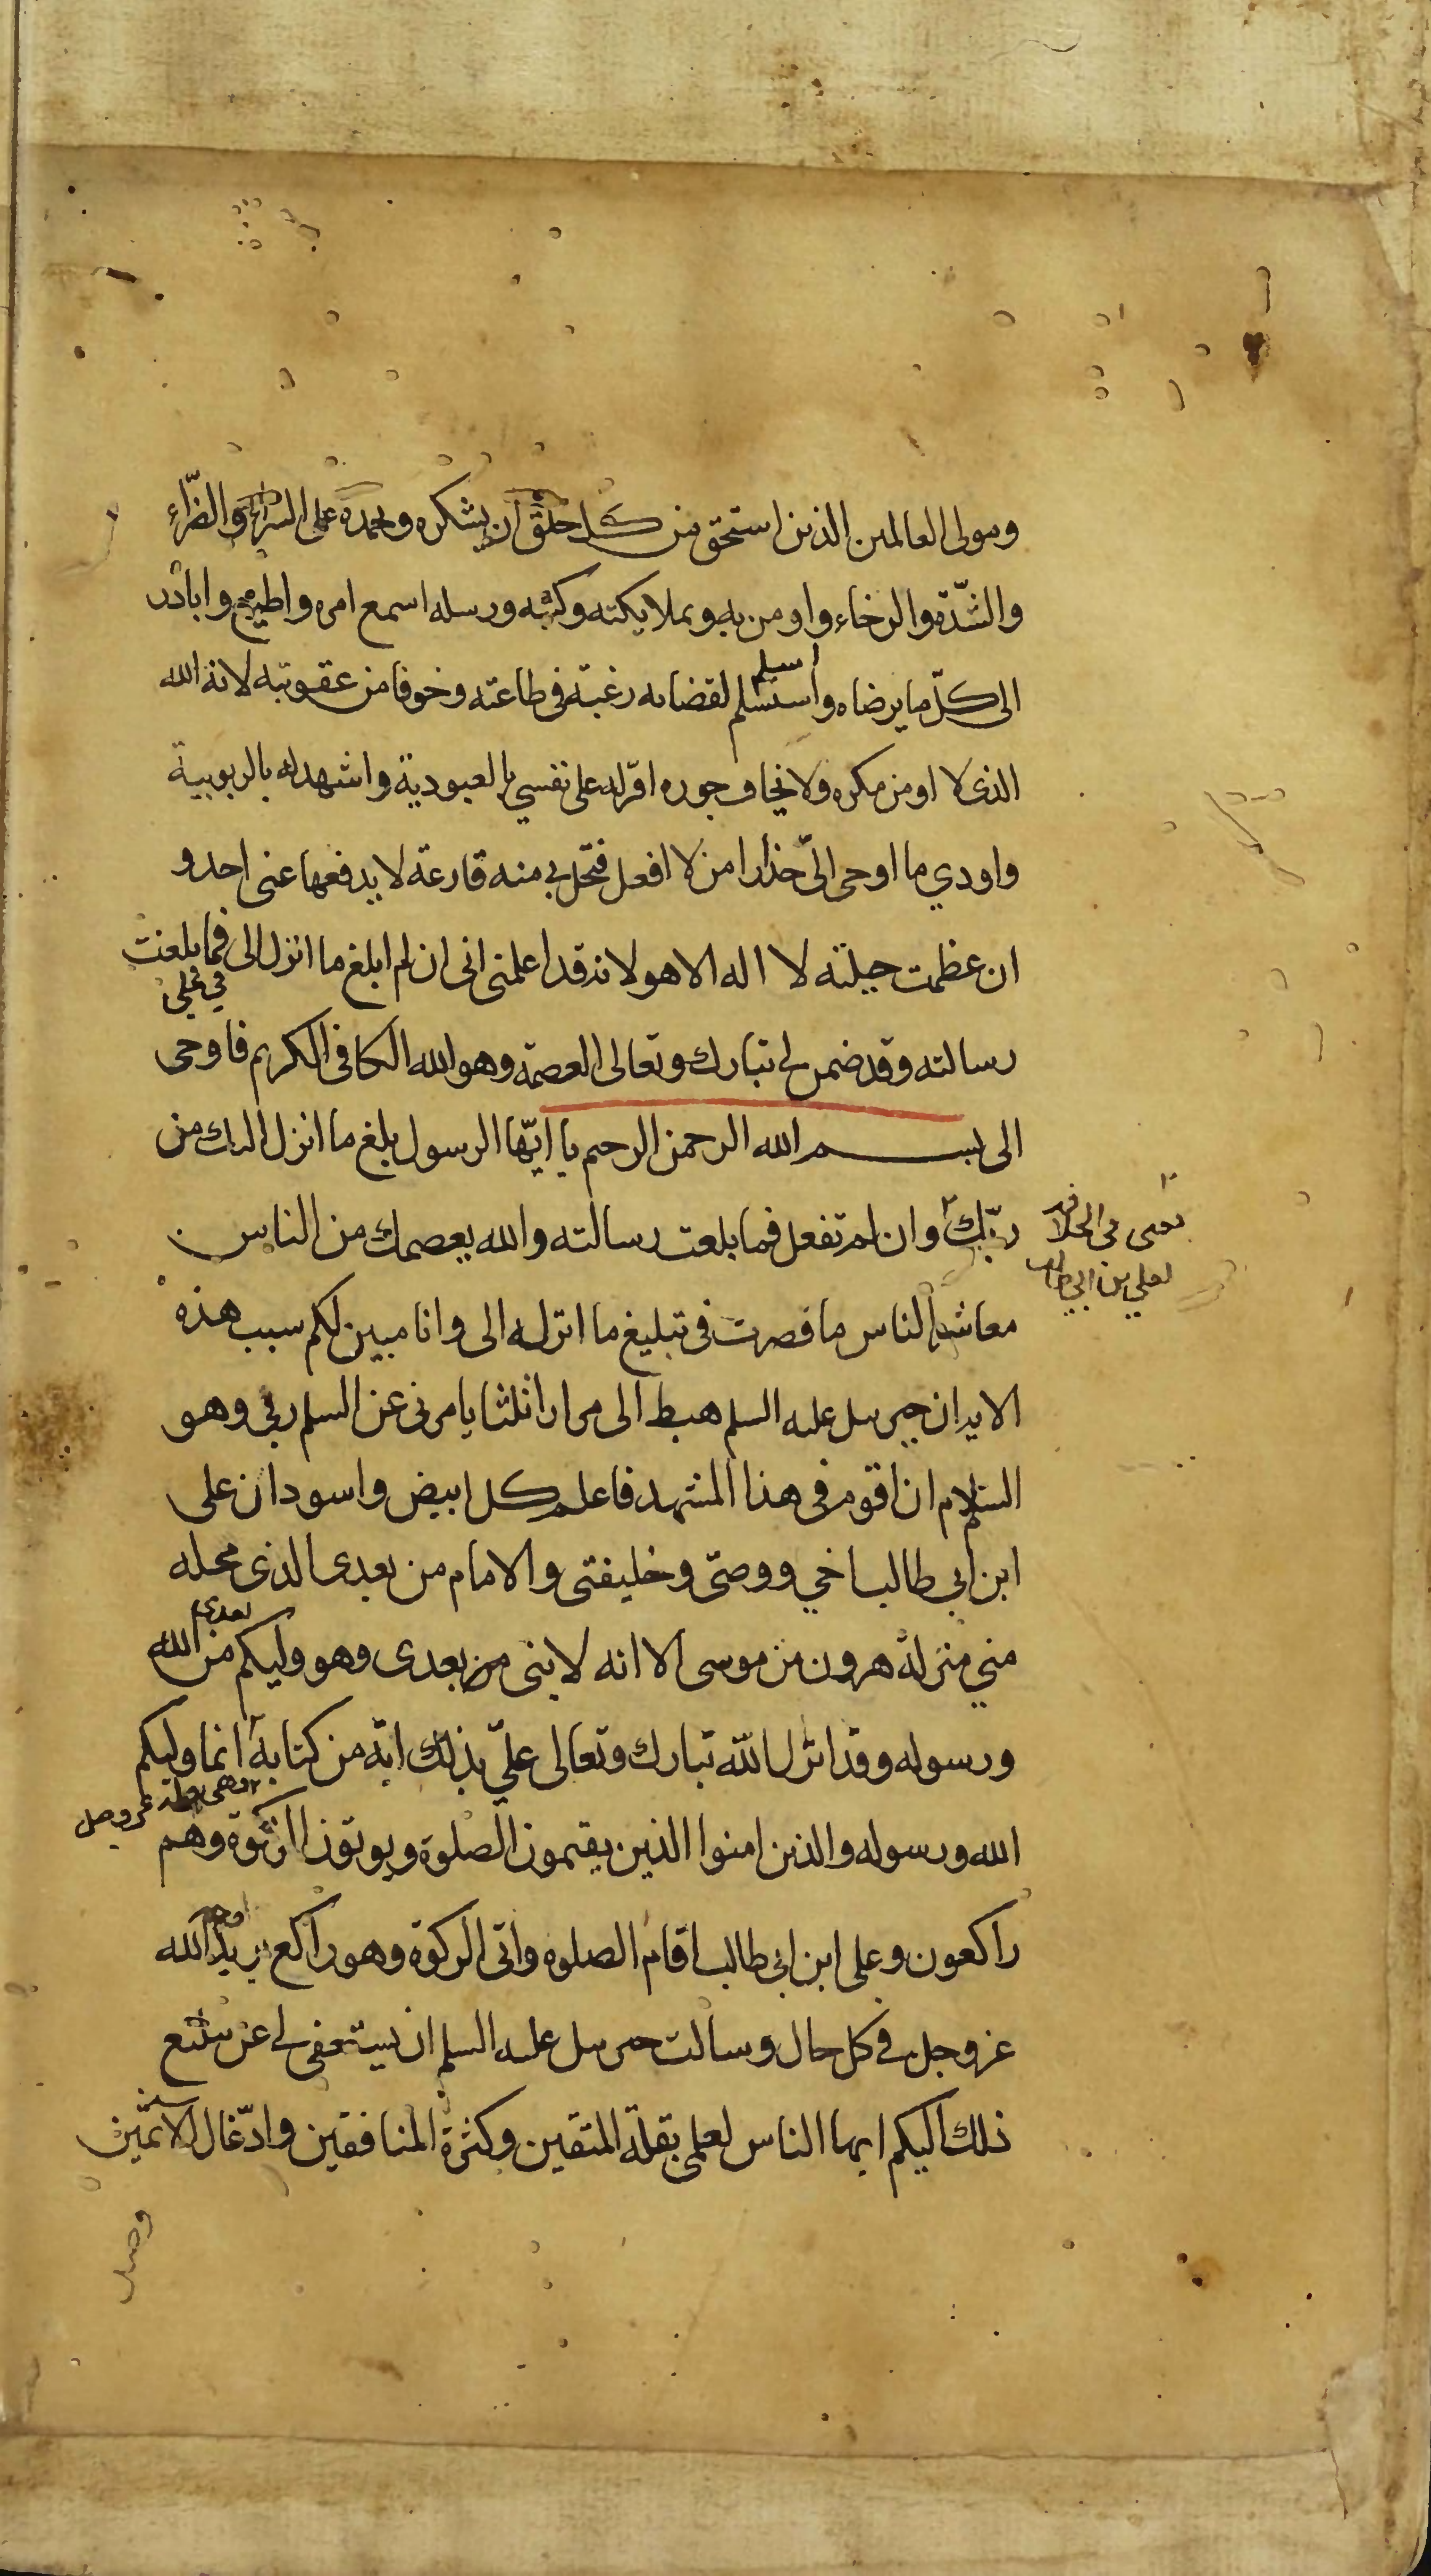 ومولى العالمين الذين استحق من كل خلق ان يشكره ويحمده على السراء والضرّاء
والشدّة والرخاء واومن به وبملايكته وكتبه ورسله اسمع امره واطيع وابادر
الى كلّ ما يرضاه واستسلم لقضائه رغبة فى طاعته وخوفا من عقوبته لانه الله
اسلم
الذى لا اومن مكره ولا يخاف جوره اقر له على نفسي بالعبودية واشهد له بالربوبية
واودي ما اوحى الىّ حذارا من لا افعل فتحل بي منه قارعة لا يدفعها عنى احد و
ان عظمت حيلته لا اله الا هو لانه قد اعلمنى انى ان لم ابلغ ما انزل الى فما بلغت
في علي
رسالته وقد ضمن لي تبارك وتعالى العصمة وهو الله الكافى الكريم فاوحى
الى بسم الله الرحمن الرحيم يا ايّها الرسول بلغ ما انزل اليك من
ربّك وان لم تفعل فما بلغت رسالته والله يعصمك من الناس
يعنى فى الخلافة
لعلي بن ابي طالب
معاشر الناس ما قصرت فى تبليغ ما انزله الى وانا مبين لكم سبب هذه
الايه ان جبرئيل عليه السلم هبط الى مرارا ثلثا يامرنى عن السلم ربي وهو
السلام ان اقوم فى هذا المشهد فاعلم كل ابيض واسود ان على
ابن ابي طالب اخي ووصيّ وخليفتى والامام من بعدى الذى محله
مني منزلة هرون من موسى الا انه لا نبى من بعدى وهو وليكم من الله
بعدى
ورسوله وقد انزل الله تبارك وتعالى علىّ بذلك اية من كتابه انما وليكم
الله ورسوله والذين امنوا الذين يقيمون الصلوة ويوتون الزكوة وهم
راكعون وعلى ابن ابي طالب اقام الصلوه واتى الزكوة وهو راكع يريد الله
عز وجل في كل حال وسالت جبرئيل عليه السلم ان يستعفى لي عن تبليغ
ذلك اليكم ايها الناس لعلمى بقلة المتقين وكثرة المنافقين وادّغال الاثمين